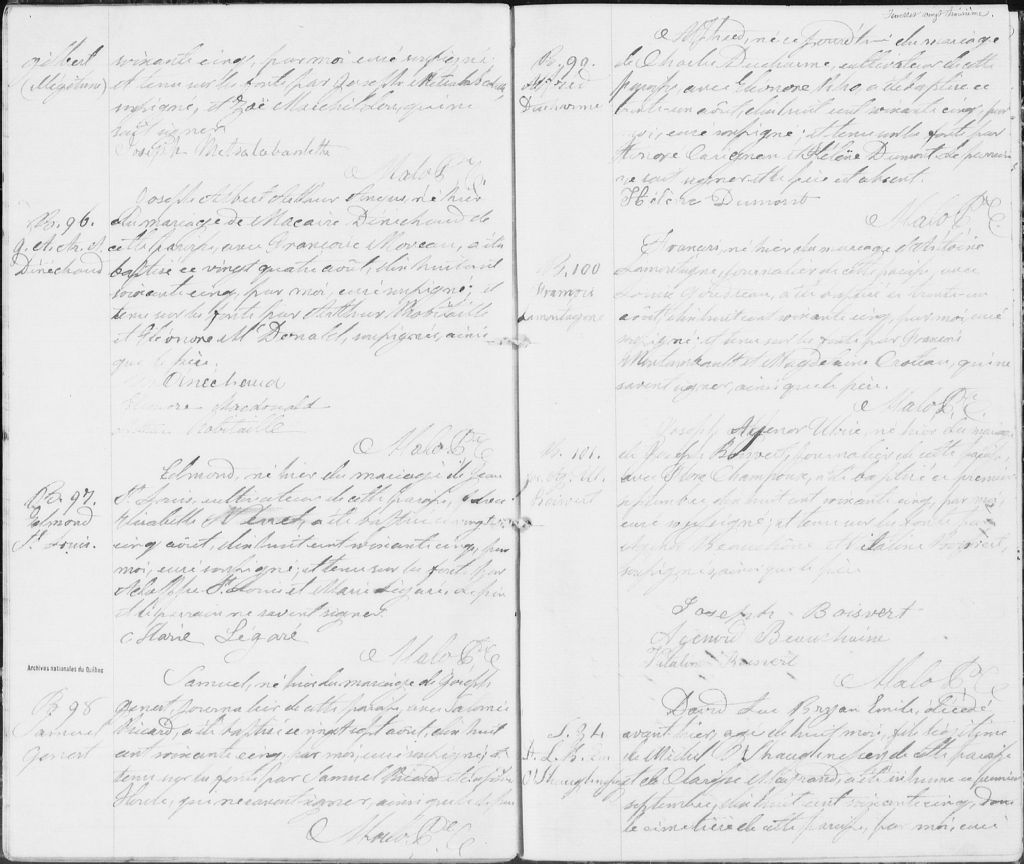 gilbert
(illégitime)
soixante cinq, par moi curé soussigné;
et tenu sur les fonts par Joseph Metsalabanlette
soussigné, et Zoé Maichildron, qui ne
sait signer.
Joseph Metsalabanlette
Malo Ptre C.
B. 96.
J. A. A. A.
Dénéchaud
Joseph Albert Arthur Amens, né hier
du mariage de Macaire Dénéchaud de
cette paroisse, avec Françoise Moreau, a été
baptisé ce vingt quatre août, dix huit cent
soixante cinq, par moi, curé soussigné; et
tenu sur les fonts par Arthur Robitaille
et Eléonore McDonald, soussignés, ainsi
que le père.
Dénéchaud
Eléonore Macdonald
Arthur Robitaille
Malo Ptre C.
B. 97.
Edmond
St Louis.
Edmond, né hier du mariage de Jean
St Louis, cultivateur de cette paroisse, avec
Elisabette, a été baptisé ce vingt
cinq août, dix huit cent soixante cinq, par
moi, curé soussigné; et tenu sur les fonts par
Adolphe St Louis et Marie Légaré, le père
et le parrain ne savent signer.
Marie Légaré
Malo Ptre C.
Archives nationales du Québec
B. 98
Samuel
Genest
Samuel, né hier du mariage de Joseph
Genest, journalier de cette paroisse, avec
Ricard, a été baptisé ce vingt sept août, dix huit
cent soixante cinq, par moi, curé soussigné; et
tenu sur les fonts par Samuel Ricard et
Houle, qui ne savent signer, ainsi que le père
Malo Ptre C.
Feuillet vingt troisième.
B. 99.
Alfred
Ducharme
Alfred, né ce jour du mariage
de Charles Ducharme, cultivateur de cette
paroisse avec Eléonore, a été baptisé ce
trente-un août, dix huit cent soixante cinq, par
moi, curé soussigné; et tenu sur les fonts par
Honoré Carignan et Hélène Dumont. Le parrain
ne sait signer et le père est absent.
Hélène Dumont
Malo Ptre C.
B. 100
François
Lamontagne
François, né hier du mariage d'Antoine
Lamontagne, journalier de cette paroisse, avec
Louise, a été baptisé ce trente-un
août, dix huit cent soixante cinq, par moi, curé
soussigné; et tenu sur les fonts par François
et Magdeleine Croteau, qui ne
savent signer, ainsi que le père.
Malo Ptre C.
B. 101.
Jos. Ag. U.
Boisvert
Joseph Agénor Ulric, né hier du mariage
de Joseph Boisvert, journalier de cette paroisse,
avec Flore Champoux, a été baptisé ce premier
septembre, dix huit cent soixante cinq, par moi,
curé soussigné; et tenu sur les fonts par
Agénor Beauchaine et Vitaline Boisvert,
soussignés, ainsi que le père.
Joseph Boisvert
Agénor Beauchaine
Vitaline Boisvert
Malo Ptre C.
S. 34
D. L. B. Em.
O'Shaughnessy
David Luc Bryan Emile, décédé
avant hier, agé de huit mois, fils légitime
de Michel O'Shaughnessy de cette paroisse
et de Clarisse, a été inhumé ce premier
septembre, dix huit cent soixante cinq, dans
le cimetière de cette paroisse, par moi, curé